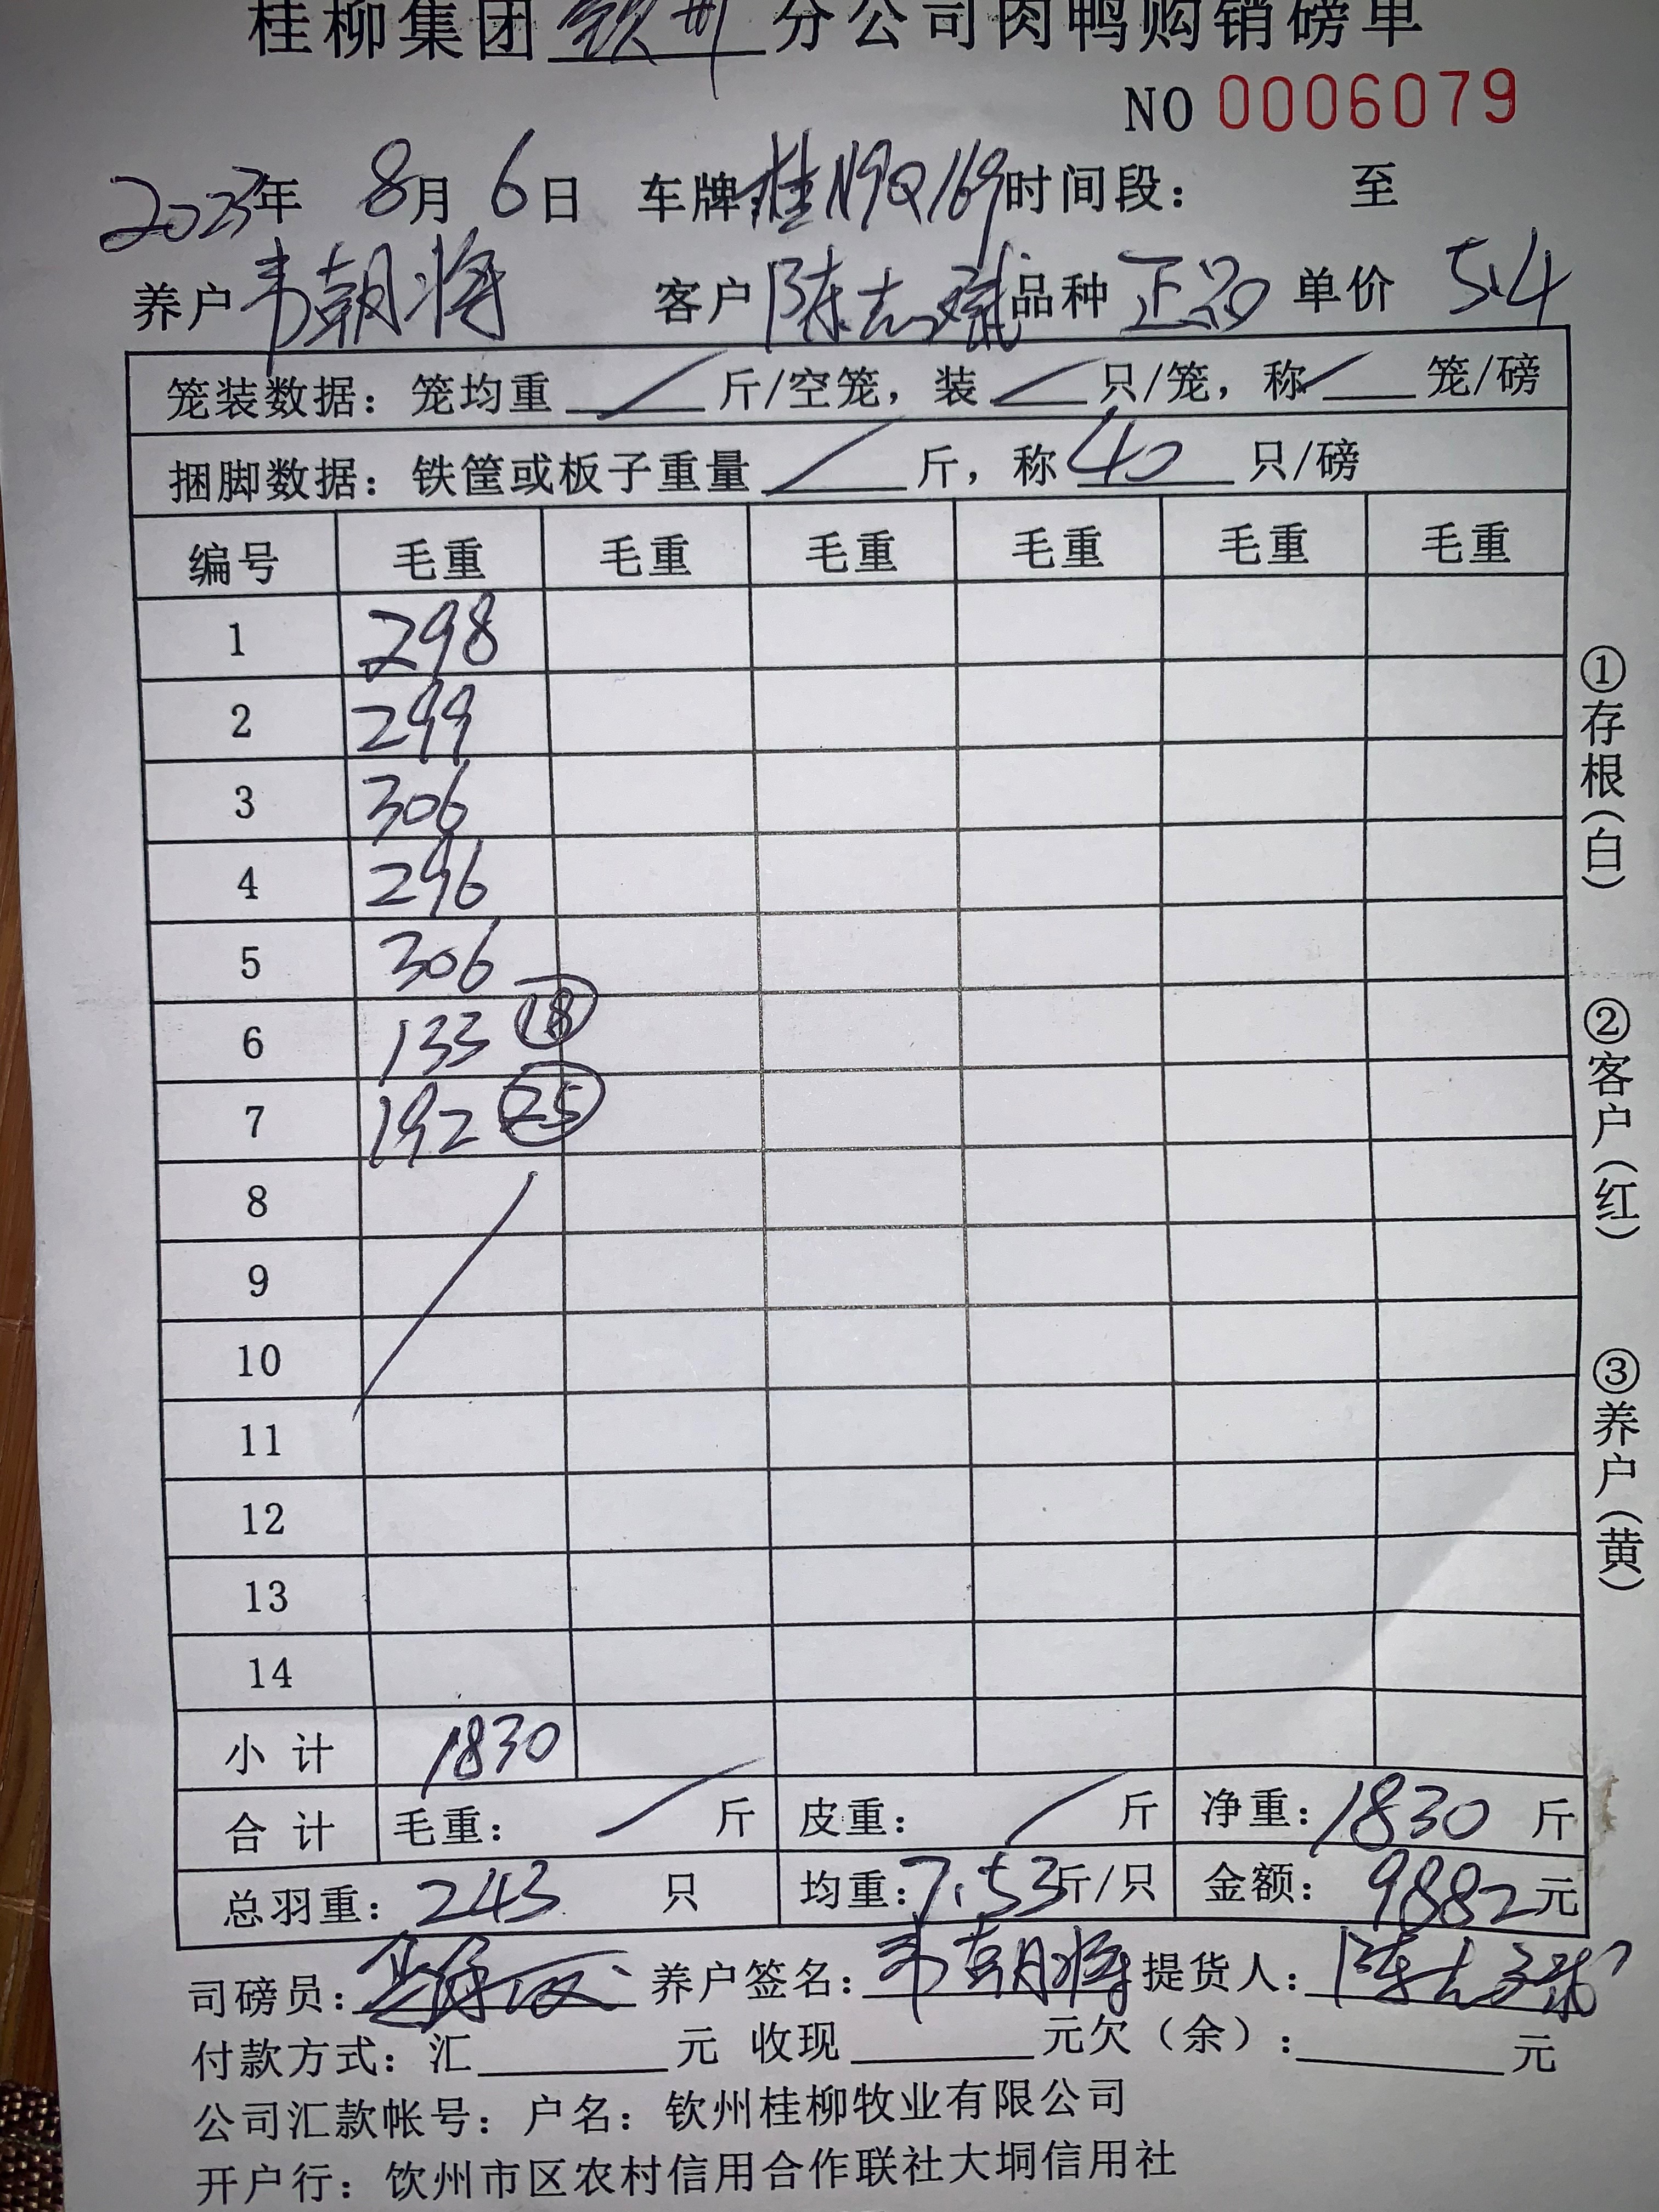 桂柳集团 钦州 分公司肉鸭购销磅单
NO 0006079
2023年 8月 6日 车牌 桂N9Q169 时间段： 至
养户 韦朝将 客户 陈志 品种 正品 单价 5.4
笼装数据：笼均重 / 斤/空笼，装 / 只/笼，称 / 笼/磅
捆脚数据：铁筐或板子重量 / 斤，称 40 只/磅
编号 毛重 毛重 毛重 毛重 毛重 毛重
1 298
2 299
3 306
4 296
5 306
6 133 ⑱
7 192 ㉕
8
9
10
11
12
13
14
小计 1830
合计 毛重： / 斤 皮重： / 斤 净重：1830 斤
总羽重：243 只 均重：7.53斤/只 金额：9882元
司磅员： 养户签名：韦朝将 提货人：陈志
付款方式：汇 元 收现 元欠（余）： 元
公司汇款帐号：户名：钦州桂柳牧业有限公司
开户行：钦州市区农村信用合作联社大垌信用社
①存根（白）
②客户（红）
③养户（黄）